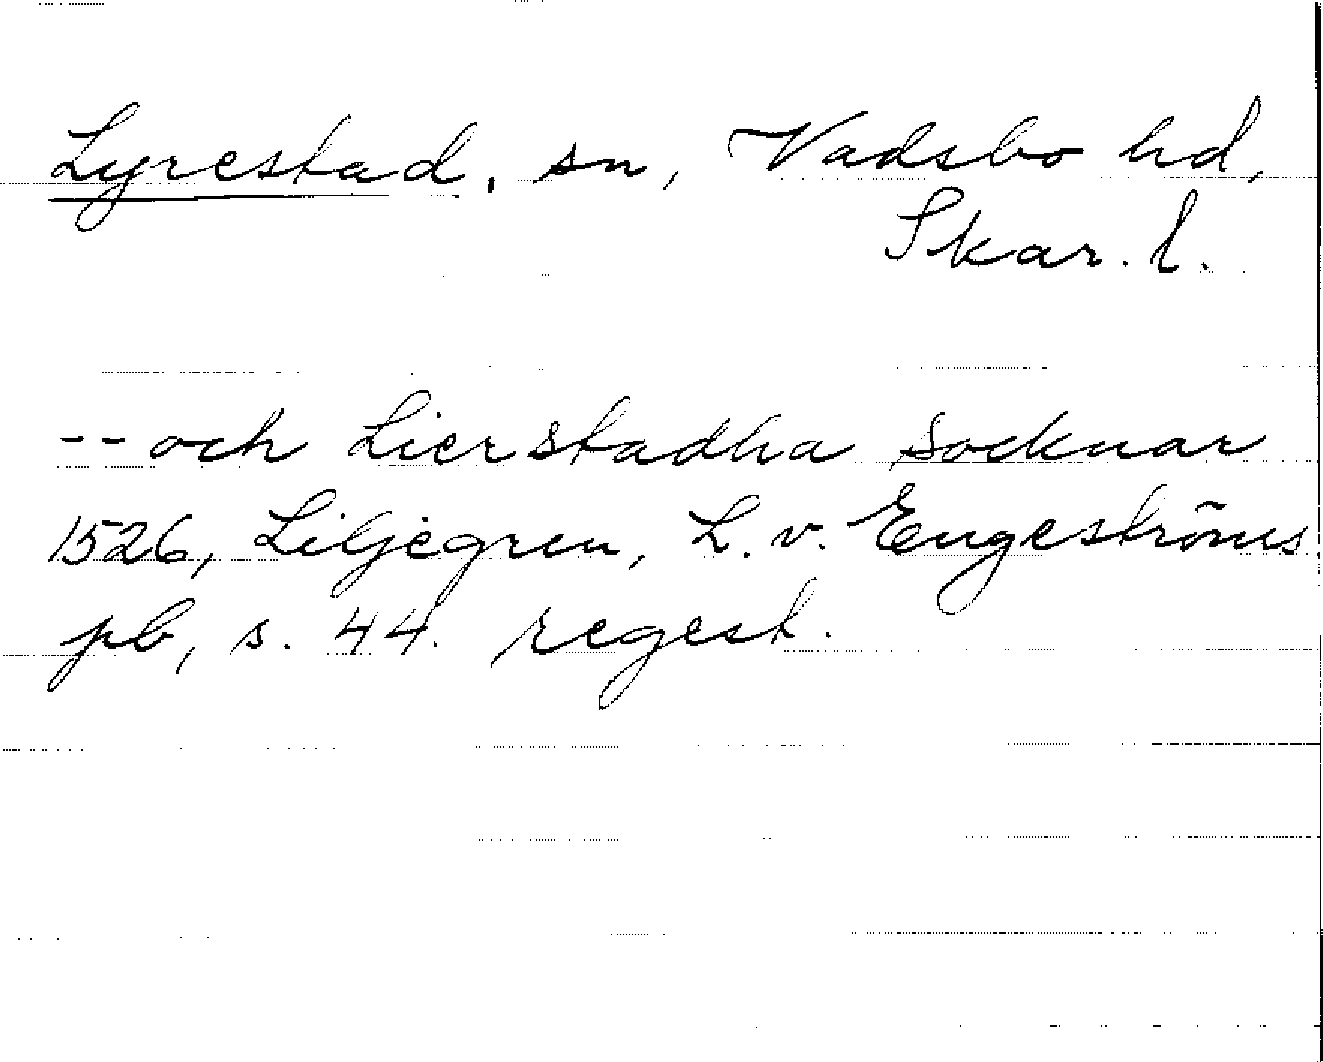 Lyrestad, sn, Vadsbo hd,
Skar. l.
-- och Lierstadha socknar
1526, Liljegren, L. v. Engeströms
pb, s. 44. regest.